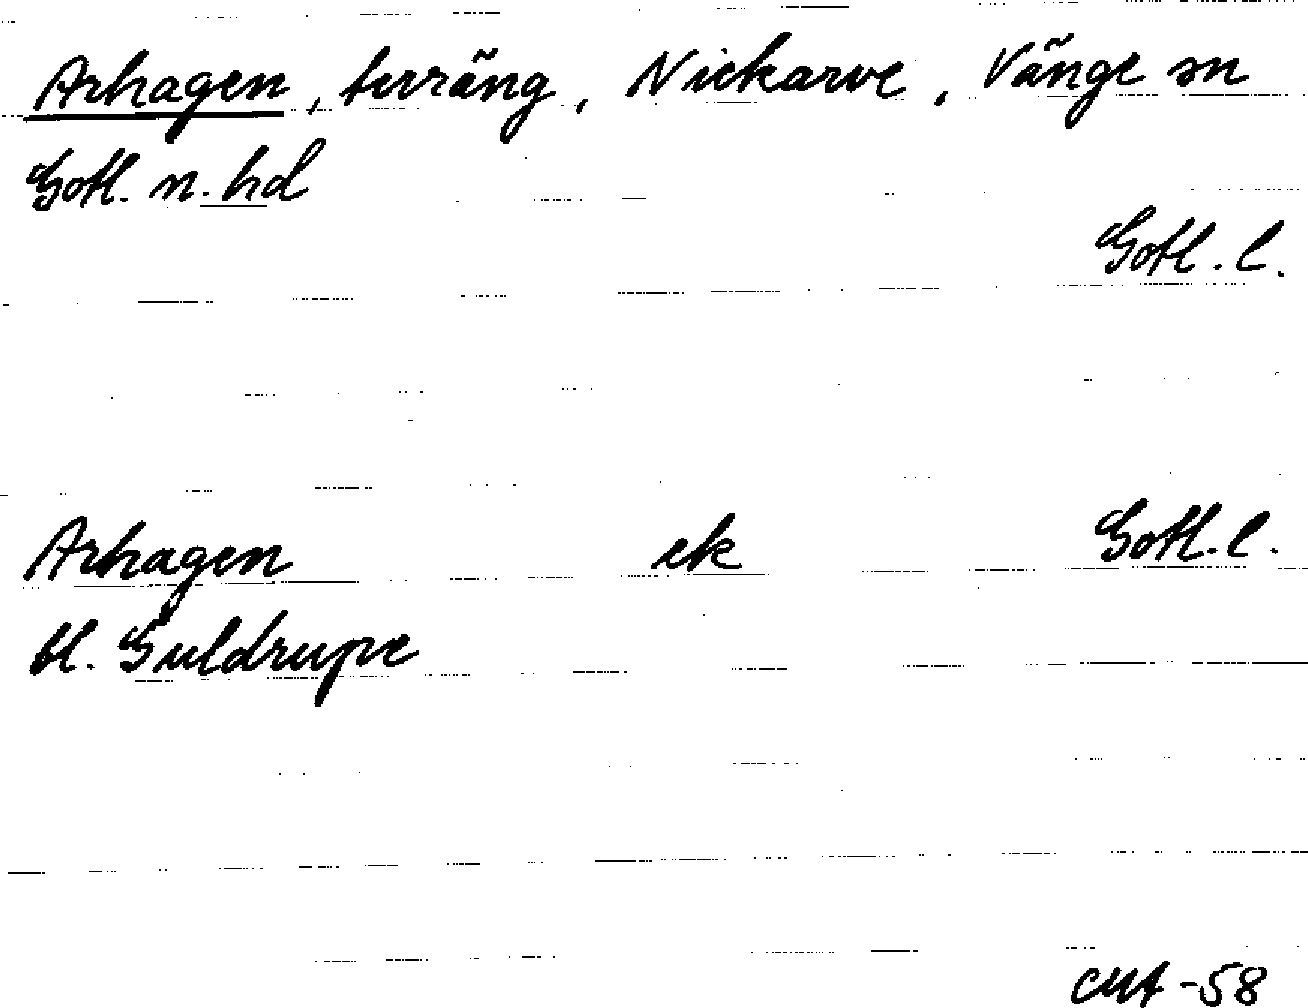 Arhagen, terräng, Nickarve, Vänge sn
Gotl. n. hd
Gotl. l.
Arhagen ek Gotl. l.
bl. Guldrupe
CMA -58